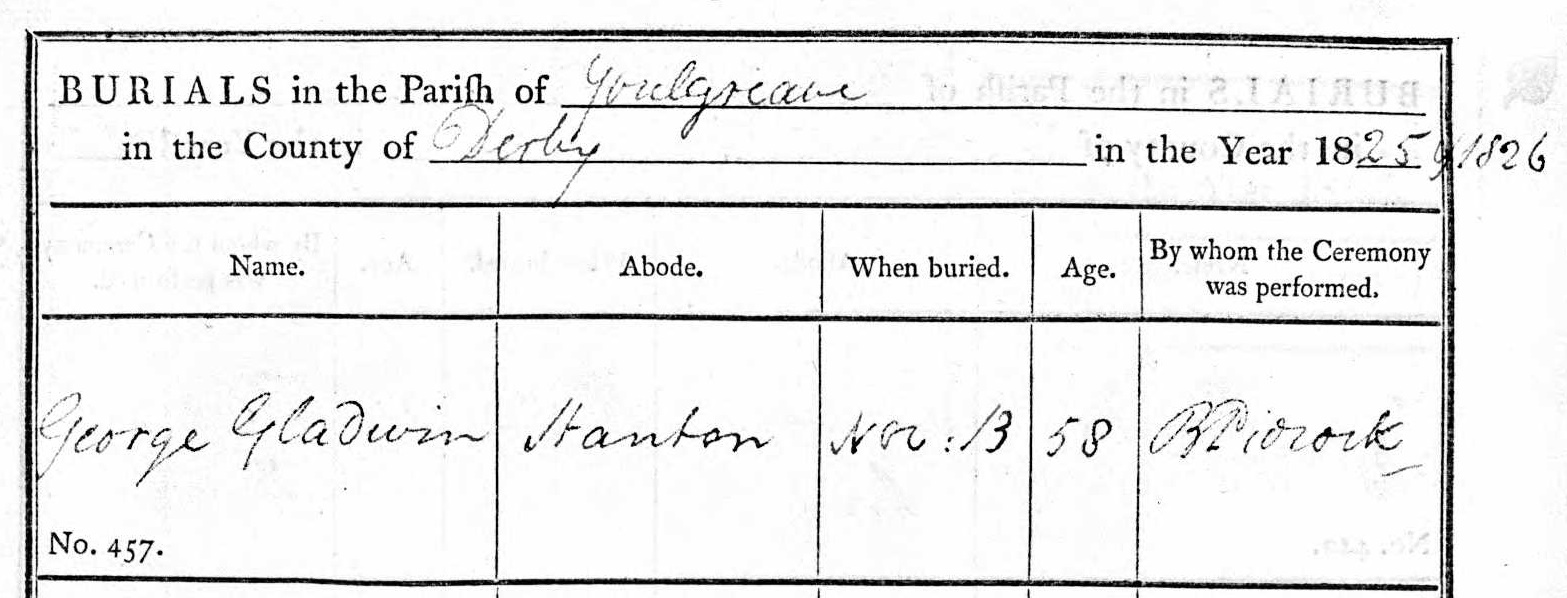 BURIALS in the Parish of Youlgreave
in the County of Derby in the Year 1825 & 1826
Name. Abode. When buried. Age. By whom the Ceremony was performed.
George Gladwin Stanton Nov: 13 58 B Pidcock
No. 457.